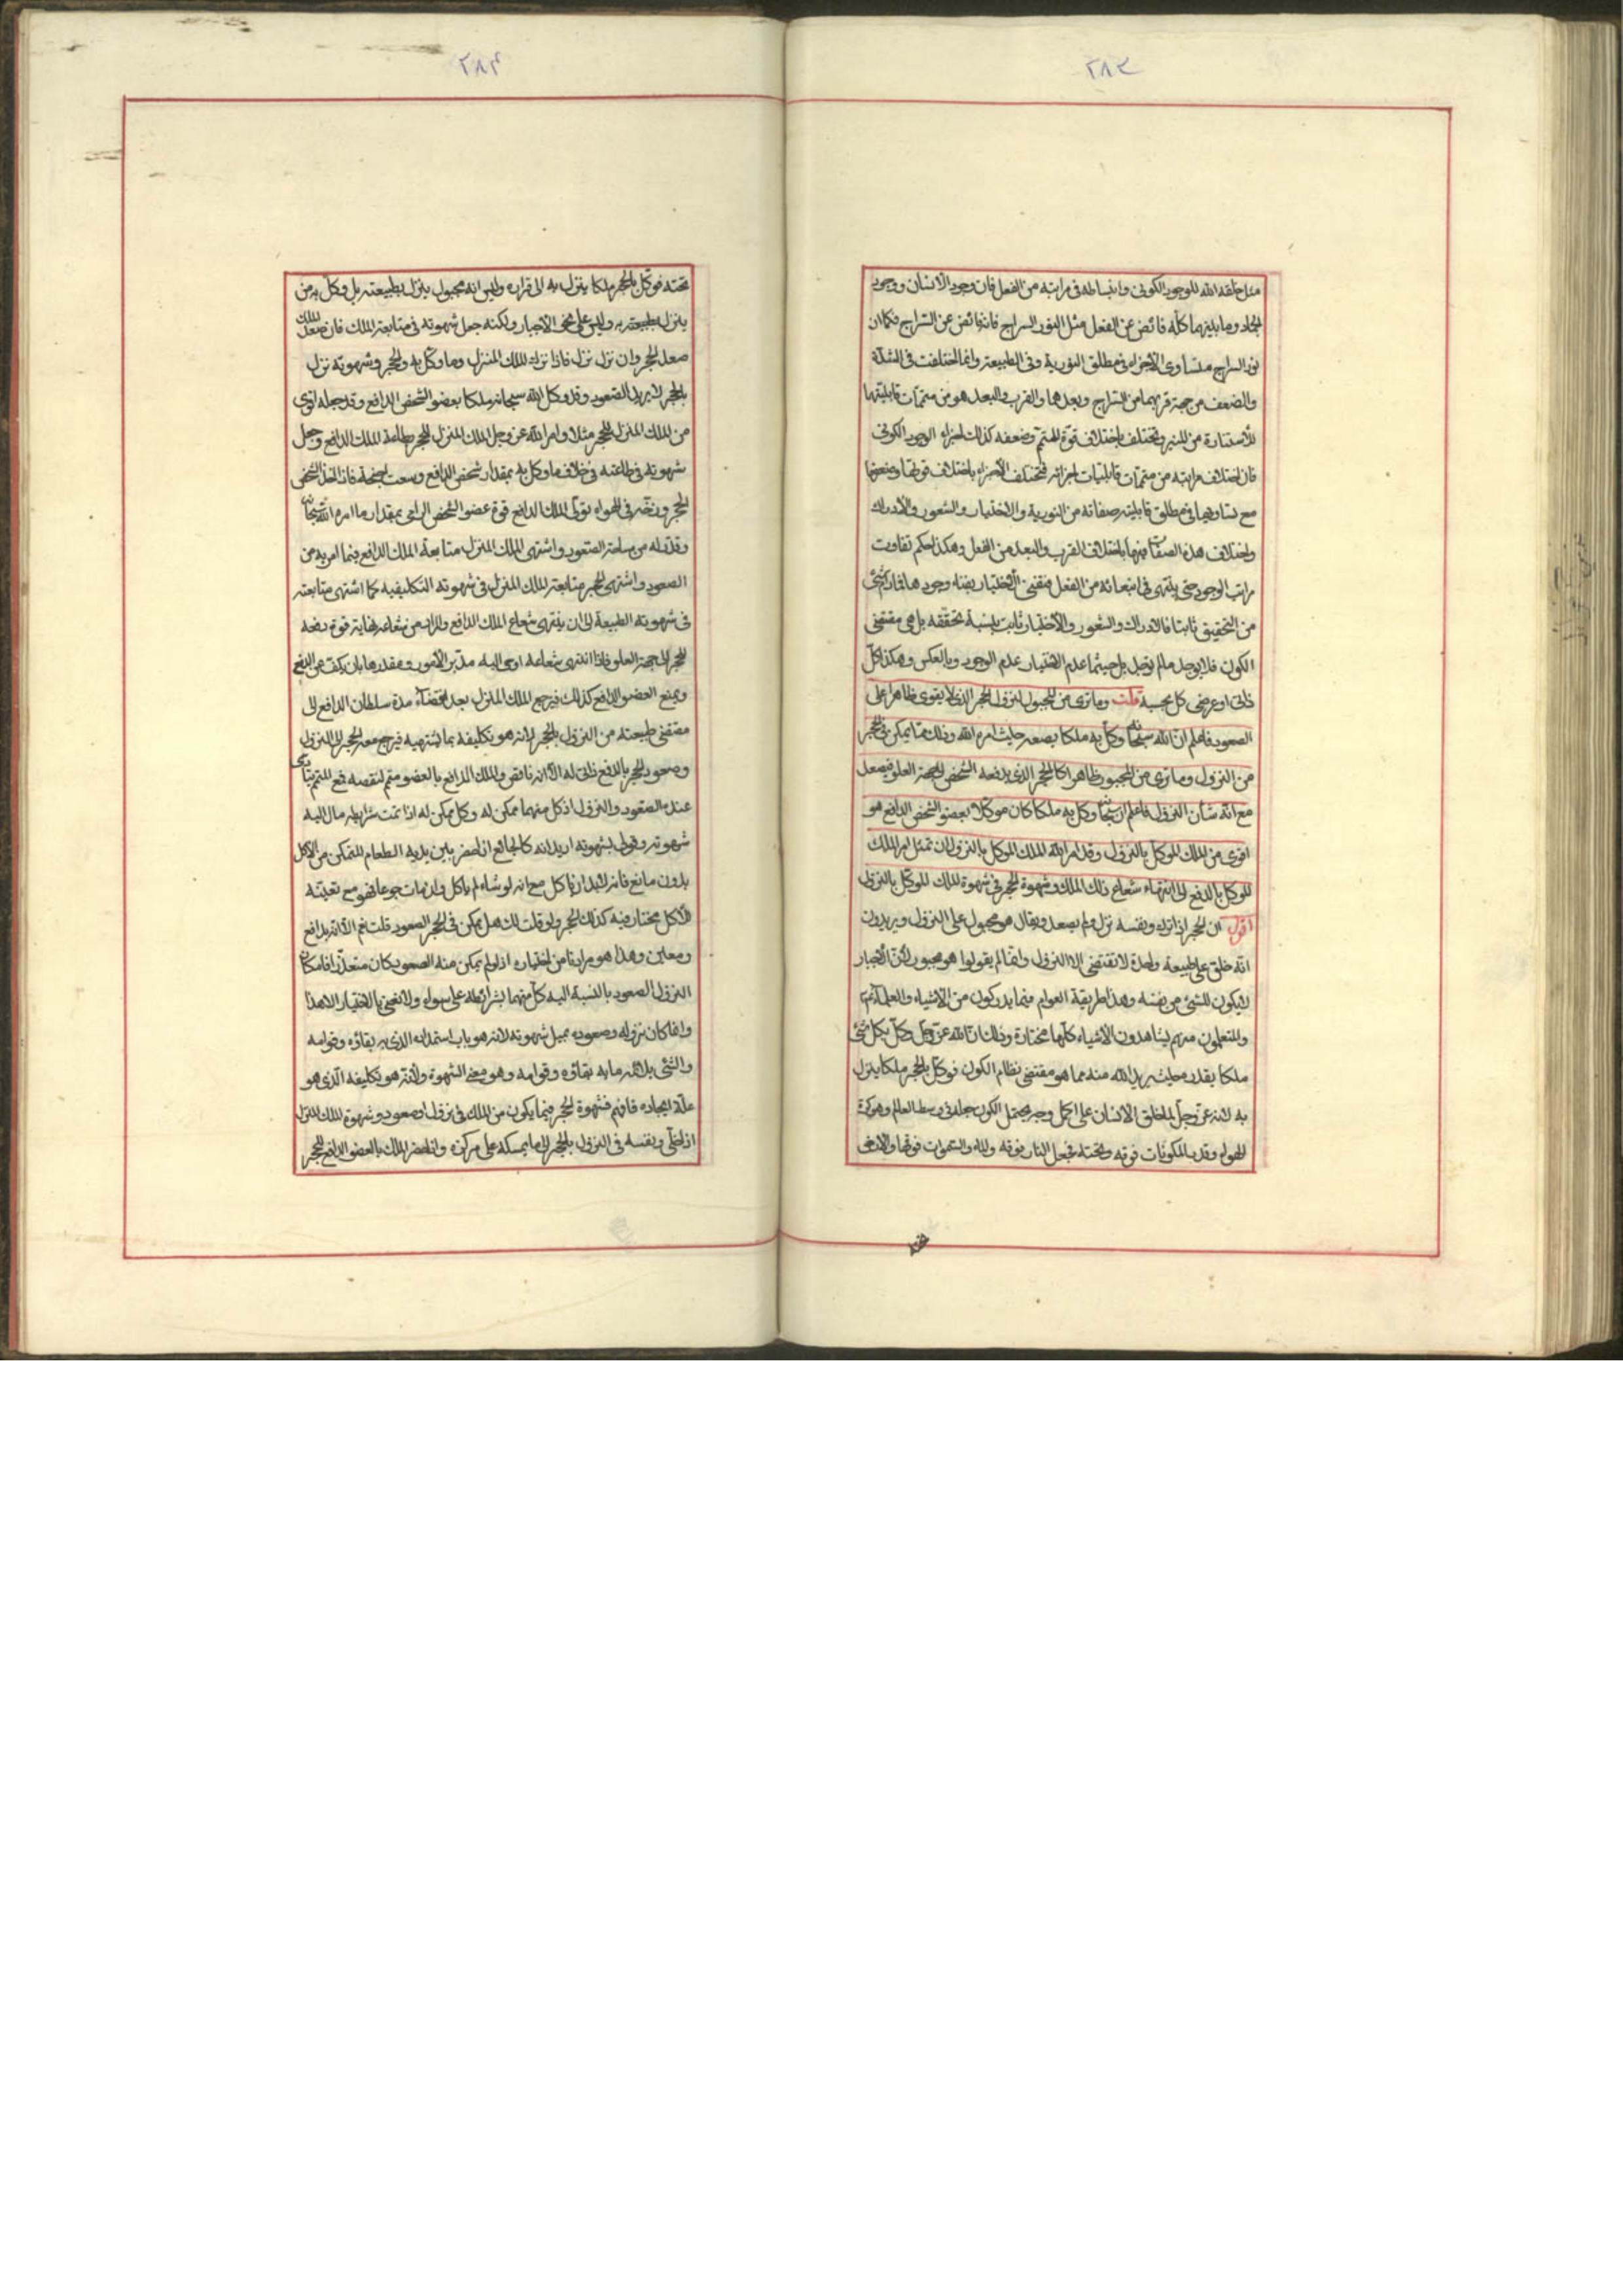 ٢٨٣
مثل خلقه الله للوجود الكونى وانبساطه فى مراتبه من الفعل فان وجود الانسان ووجود
الجماد وما بينهما كله فائض عن الفعل مثل النور السراج فانه فائض عن السراج فكما ان
نور السراج متساوى الاجزاء فى مطلق النورية وفى الطبيعة وانما اختلفت فى الشدة
والضعف من جهة قربهما من السراج وبعدها والقرب والبعد هو من متممات قابليتها
للاستنارة من المنير وتختلف باختلاف قوة المتمم وضعفه كذلك اجزاء الوجود الكونى
فان اختلاف مراتبه من متممات قابليات اجزائه فتختلف الاجزاء باختلاف قوتها وضعفها
مع تساويها فى مطلق قابليته صفاته من النورية والاختيار والشعور والادراك
واختلاف هذه الصفات فيها باختلاف القرب والبعد من الفعل وهكذا حكم تفاوت
مراتب الوجود حتى ينتهى فى انبعاثه من الفعل فيفنى الاختيار بفناء وجودها فمادام الشئ
من التحقيق ثابتا فالادراك والشعور والاختيار ثابت بنسبة تحققه بل هى مقتضى
الكون فلا يوجد مالم يوجد بل حيثما عدم الاختيار عدم الوجود وبالعكس وهكذا كل
ذاتى او عرضى كل بحسبه قلت وما ترى من المجبول لنزول الحجر الذى لا يقوى ظاهرا على
الصعود فاعلم ان الله سبحانه وكل به ملكا يصعد حيث امره الله وذلك مما يمكن فى الحجر
من النزول وما ترى من المجبور ظاهرا كالحجر الذى يدفعه الشخص لجهة العلو فيصعد
مع انه شأن النزول فاعلم انه سبحانه وكل به ملكا كان موكلا بعضو الشخص الدافع هو
اقوى من الملك الموكل بالنزول وقد امر الله الملك الموكل بالنزول ان تمثل امر الملك
الموكل بالدفع الى انتهاء شعاع ذلك الملك وشهوة الحجر فى شهوة الملك الموكل بالنزول
اقول ان الحجر اذا ترك ونفسه نزل ولم يصعد ويقال هو مجبول على النزول ويريدون
انه خلق على طبيعة واحدة لا تقتضى الا النزول وانما لم يقولوا هو مجبور لان الاجبار
لا يكون للشئ من نفسه وهذا طريقة العوام فيما يدركون من الاشياء والعلماء منهم
والمتعلمون منهم يشاهدون الاشياء كلها مختارة وذلك ان الله عز وجل وكل بكل شئ
ملكا يقدره حيث يريد الله منه مما هو مقتضى نظام الكون فوكل بالحجر ملكا ينزل
به لانه عز وجل لما خلق الانسان على اكمل وجه يحتمل الكون جعله فى وسط العالم وهو كرة
الهواء وقدر المكونات فوقه وتحته فجعل النار فوقه والسموات فوقها والارض
تحته
٢٨٤
تحته فوكل بالحجر ملكا ينزل به الى قراره وليس انه مجبول ينزل بطبيعته بل وكل به من
ينزل بطبيعته به وليس على نحو الاجبار ولكنه جعل شهوته فى متابعة الملك فان صعد الملك
صعد الحجر وان نزل نزل فاذا ترك الملك المنزل وما وكل به والحجر وشهوته نزل
بالحجر لا يريد الصعود وقد وكل الله سبحانه ملكا بعضو الشخص الدافع وقد جعله اقوى
من الملك المنزل للحجر مثلا وامر الله عز وجل الملك المنزل للحجر بطاعة الملك الدافع وجعل
شهوته فى طاعته فى خلاف ما وكل به بمقدار شخص الدافع وسعت اجنحته فاذا اخذ الشخص
الحجر وزخه فى الهواء تولى الملك الدافع قوة عضو الشخص الرامى بمقدار ما امره الله سبحانه
وقدر له من مسافة الصعود واشتهى الملك المنزل متابعة الملك الدافع فيما امر به من
الصعود واشتهى الحجر متابعة الملك المنزل فى شهوته التكليفية كما اشتهى متابعته
فى شهوته الطبيعة الى ان ينتهى شعاع الملك الدافع والمراد من شعاعه نهاية قوة دفعه
للحجر لجهة العلو فاذا انتهى شعاعه اوحى اليه مدبر الامور ومقدرها بان يكف عن الدفع
ويمنع العضو الدافع كذلك فيرجع الملك المنزل بعد انقضاء مدة سلطان الدافع الى
مقتضى طبيعته من النزول بالحجر لانه هو تكليفه بما يشتهيه فيرجع معه الحجر الى النزول
وصعود الحجر بالدفع ذاتى له الا انه ناقص والملك الدافع بالعضو متمم لنقصه فمع المتمم يتساوى
عنده الصعود والنزول اذ كل منهما ممكن له وكل ممكن له اذا تمت شرايطه مال اليه
شهوته وقولى بشهوته اريد انه كالجائع اذا حضر بين يديه الطعام المتمكن من الاكل
بدون مانع فانه لابد ان ياكل مع انه لو شاء لم ياكل وان مات جوعا فهو مع تعينه
للاكل مختار فيه كذلك الحجر ولو قلت لك هل يمكن فى الحجر الصعود قلت نعم الا انه بدافع
ومعين وهذا هو مرادنا من اختياره اذ لو لم يمكن منه الصعود كان متعذرا فامكان
النزول الصعود بالنسبة اليه كل منهما بشرائطه على سواء ولا نعنى بالاختيار الا هذا
وانما كان نزوله وصعوده بميل شهوته لانه هو باب استمداده الذى به بقاؤه وقوامه
والشئ يلائمه مابه بقاؤه وقوامه وهو معنى الشهوة ولانه هو تكليفه الذى هو
علة ايجاده فافهم فشهوة الحجر فيما يكون من الملك فى نزول او صعود وشهوة الملك المنزل
اذا خلى ونفسه فى النزول بالحجر الى ما يمسكه على مركزه واذا حضر الملك بالعضو الدافع للحجر